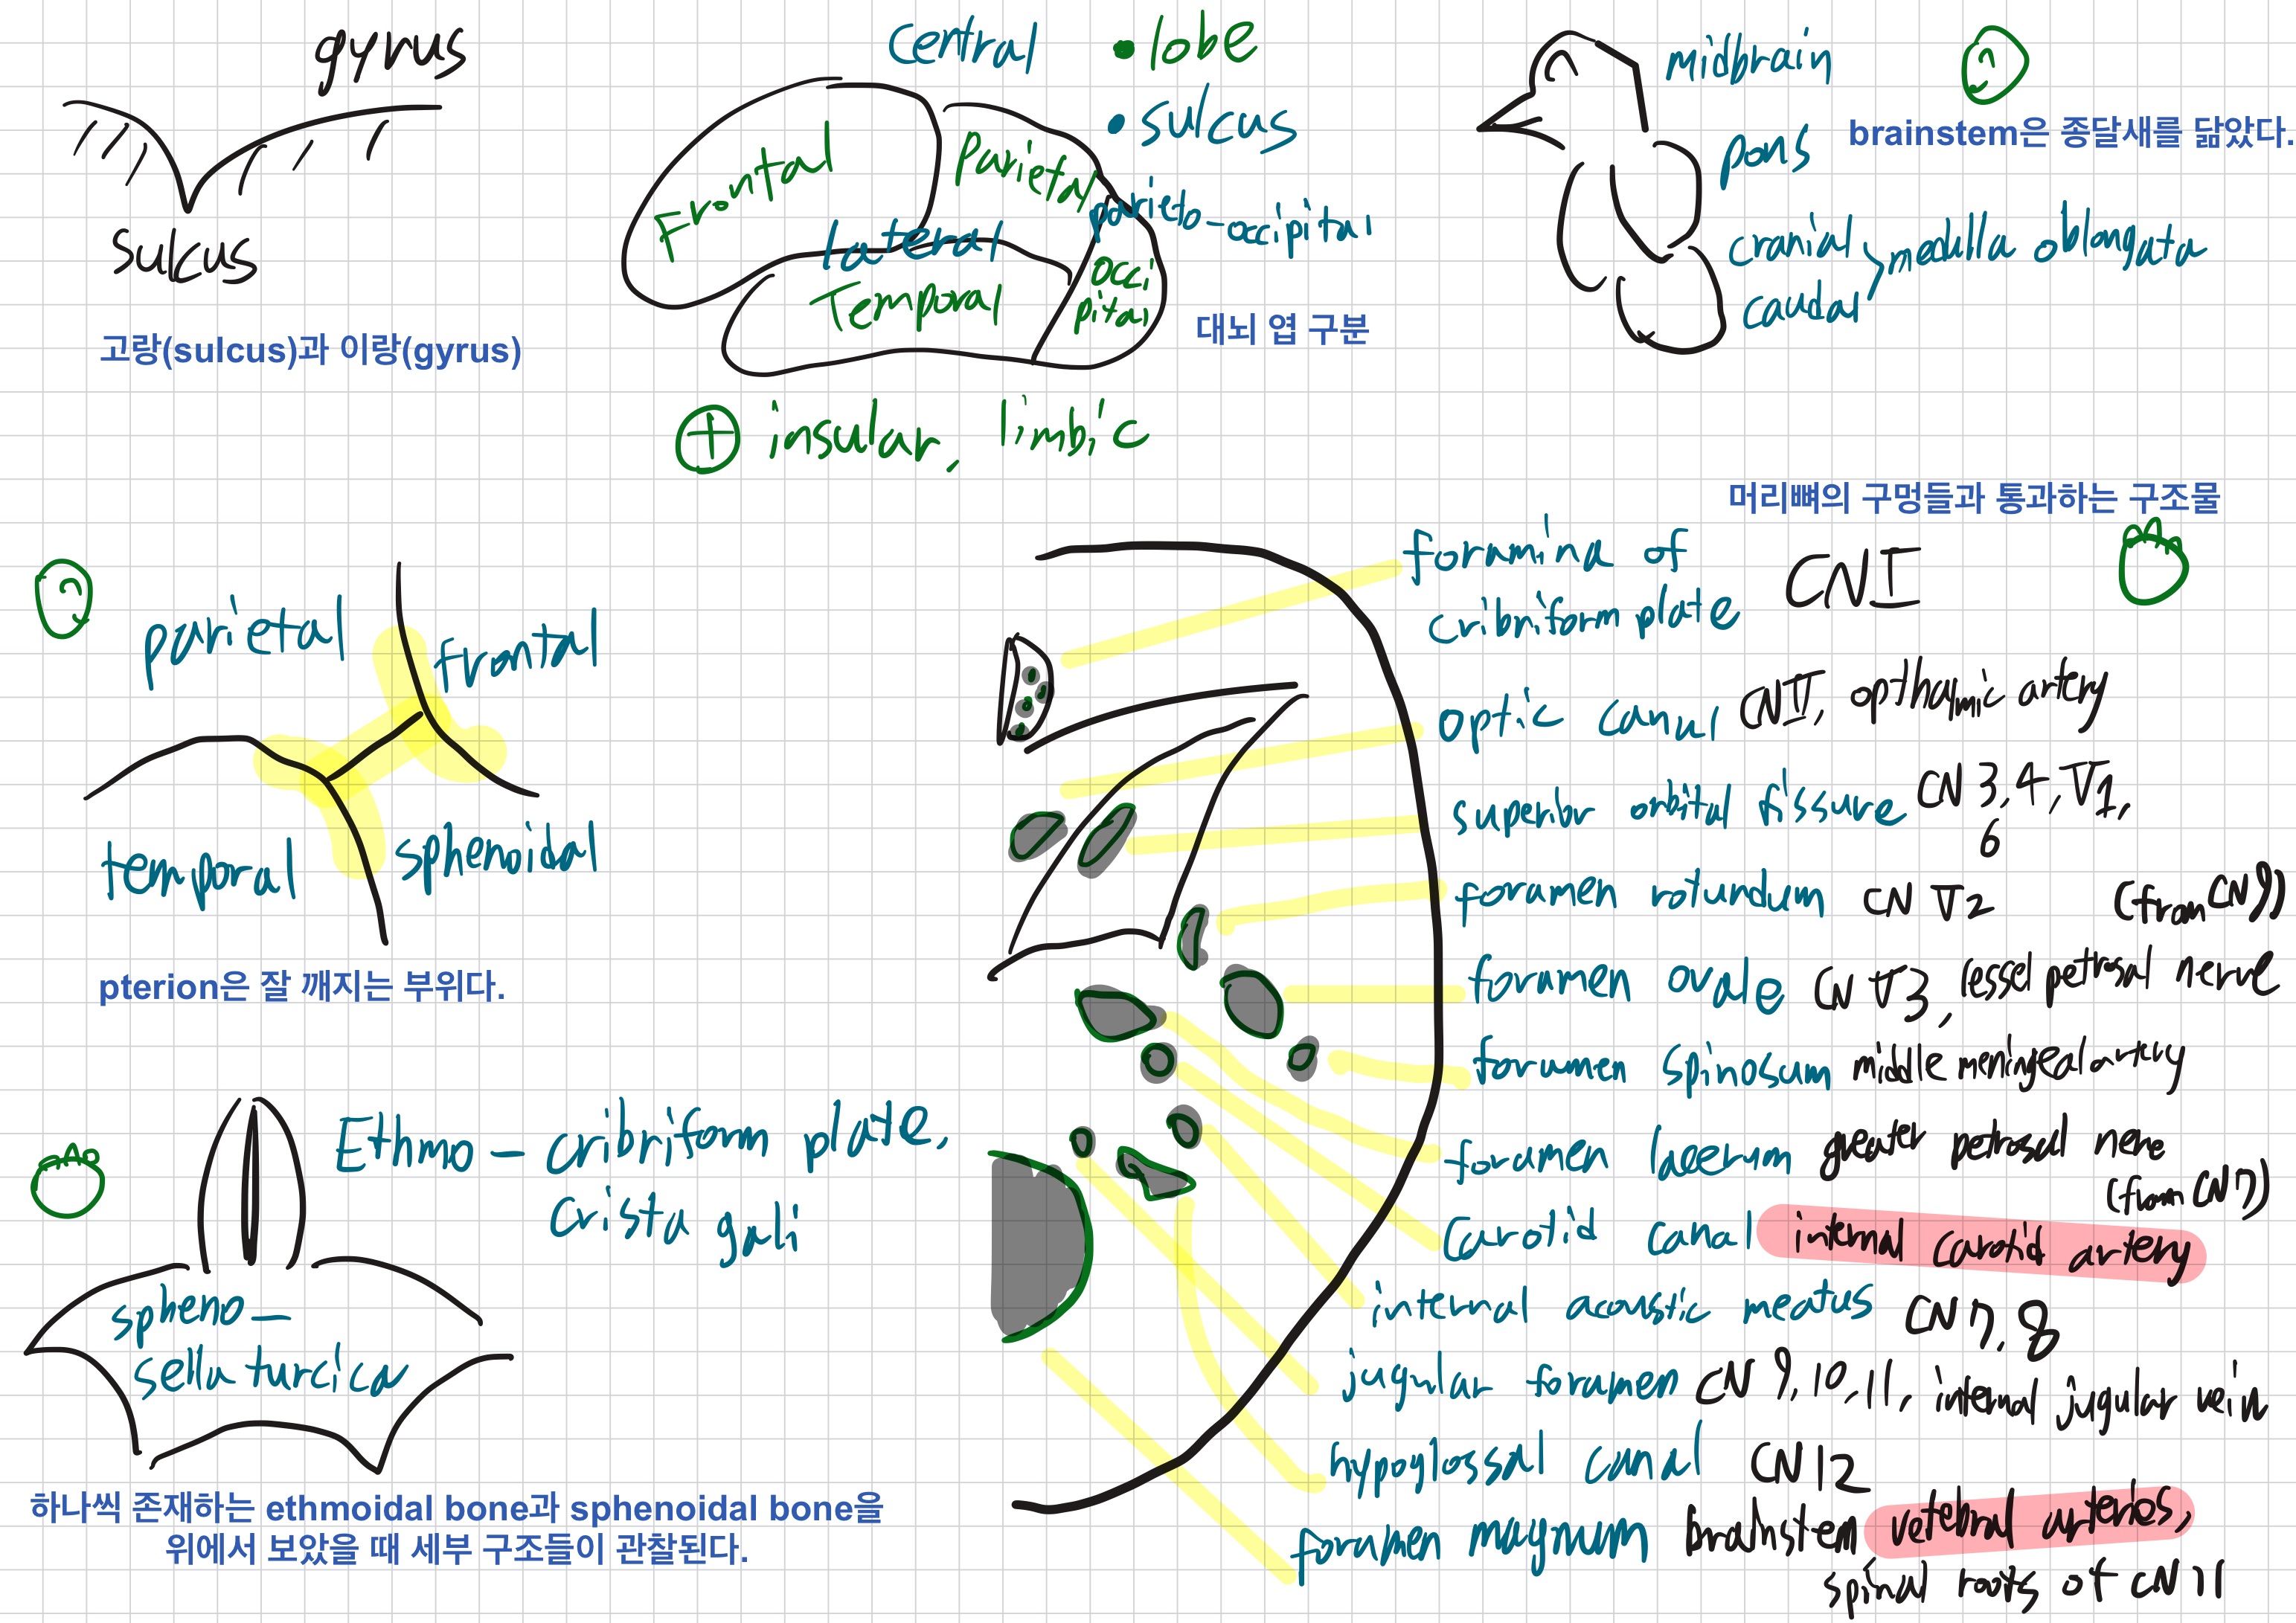 gyrus
sulcus
고랑(sulcus)과 이랑(gyrus)
central
lobe
sulcus
Frontal
Parietal
parieto-occipital
lateral
Temporal
occi
pital
대뇌 엽 구분
+ insular, limbic
midbrain
pons
cranial
caudal
medulla oblongata
brainstem은 종달새를 닮았다.
parietal
frontal
temporal
sphenoidal
pterion은 잘 깨지는 부위다.
Ethmo - cribriform plate,
crista gali
spheno -
sella turcica
하나씩 존재하는 ethmoidal bone과 sphenoidal bone을
위에서 보았을 때 세부 구조들이 관찰된다.
머리뼈의 구멍들과 통과하는 구조물
foramina of
cribriform plate CN I
optic canal CN II, opthaymic artery
superior orbital fissure CN 3, 4, V1,
6
foramen rotundum CN V2
(from CN 9)
foramen ovale CN V3, lessel petrosal nerve
foramen spinosum middle meningeal artery
foramen lacerum greater petrosal nerve
(from CN 7)
carotid canal internal carotid artery
internal acoustic meatus CN 7, 8
jugular foramen CN 9, 10, 11, internal jugular vein
hypoglossal canal CN 12
foramen magnum brainstem vetebral arteries,
spinal roots of CN 11